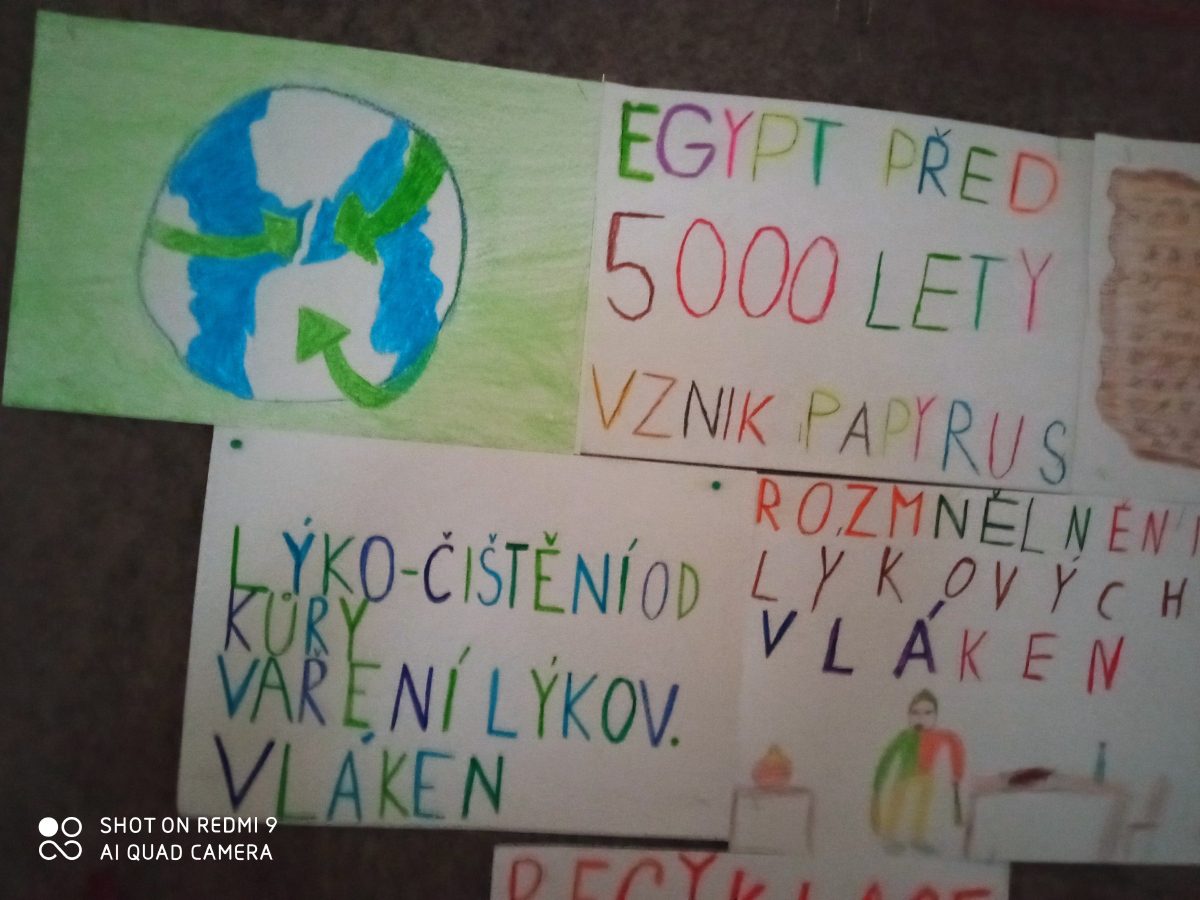 EGYPT PŘED
5000 LETY
VZNIK PAPYRUS
LÝKO-ČIŠTĚNÍ OD
KŮRY
VAŘENÍ LÝKOV.
VLÁKEN
ROZMNĚLNĚNÍ
LYKOVÝCH
VLÁKEN
RECYKLACE
SHOT ON REDMI 9
AI QUAD CAMERA